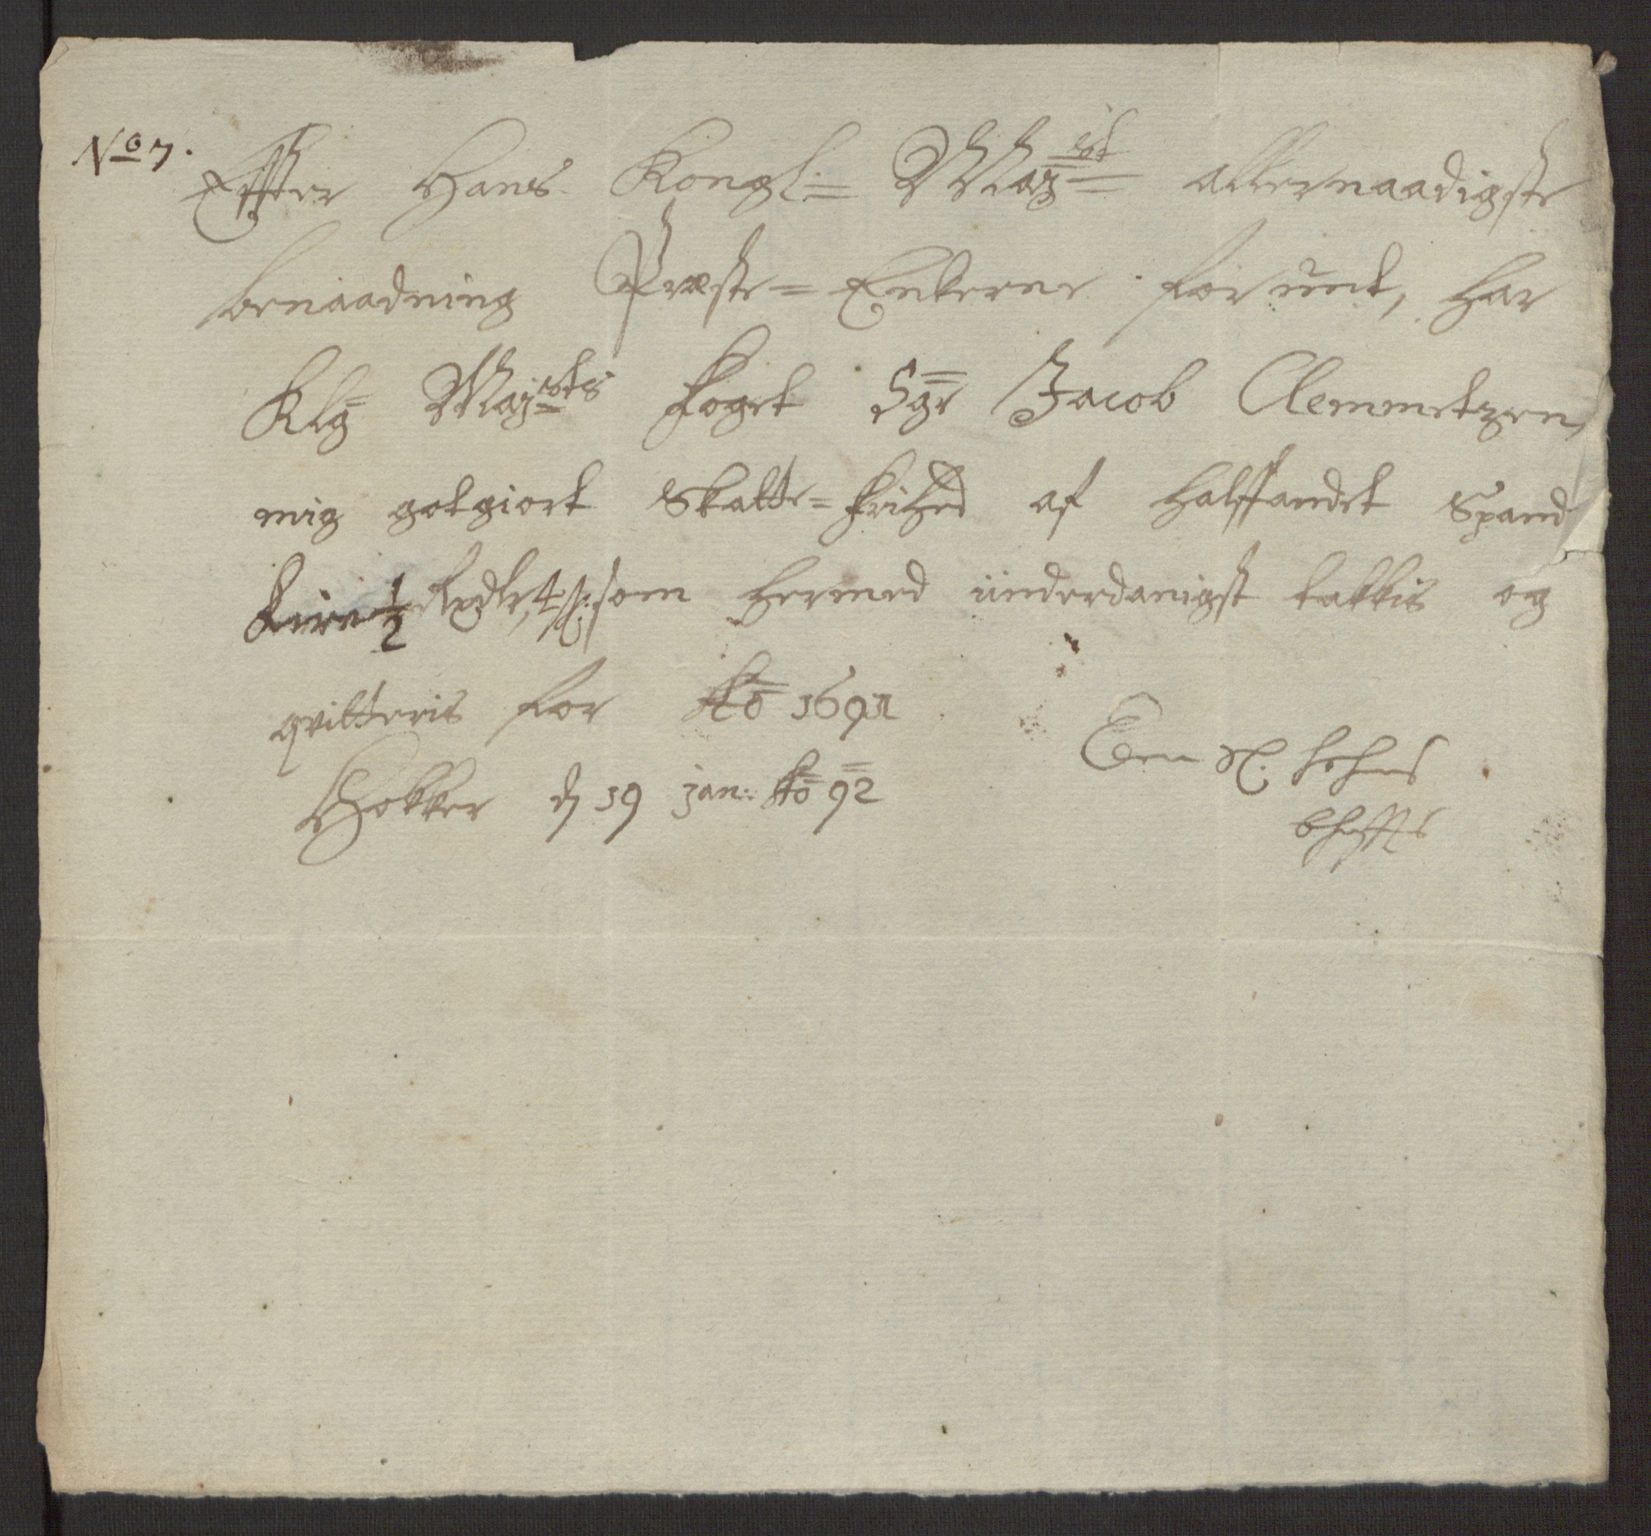 No 7.
Effter Hans Kongl: Maj:st allernaadigste
benaadning Præste=Enkerne forundt, har
Klg Maj:sts foget Sgr Jacob Clemmetzen,
mig gotgiort Skatte=frihed af halfandet Spand
½ som hermed underdanigst takkis og
qvitteris for Ao 1691
d 19 jan: Ao 92